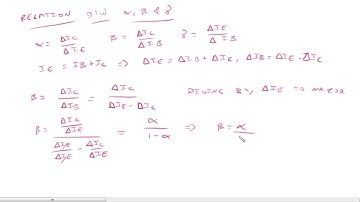 RELATION B/W α, β & γ
α = ΔIC / ΔIE β = ΔIC / ΔIB γ = ΔIE / ΔIB
IE = IB + IC ⇒ ΔIE = ΔIB + ΔIC, ΔIB = ΔIE - ΔIC
β = ΔIC / ΔIB = ΔIC / ΔIE - ΔIC DIVING BY ΔIE TO
β = ΔIC / ΔIE / ΔIE / ΔIE - ΔIC / ΔIE = α / 1 - α ⇒ β = α